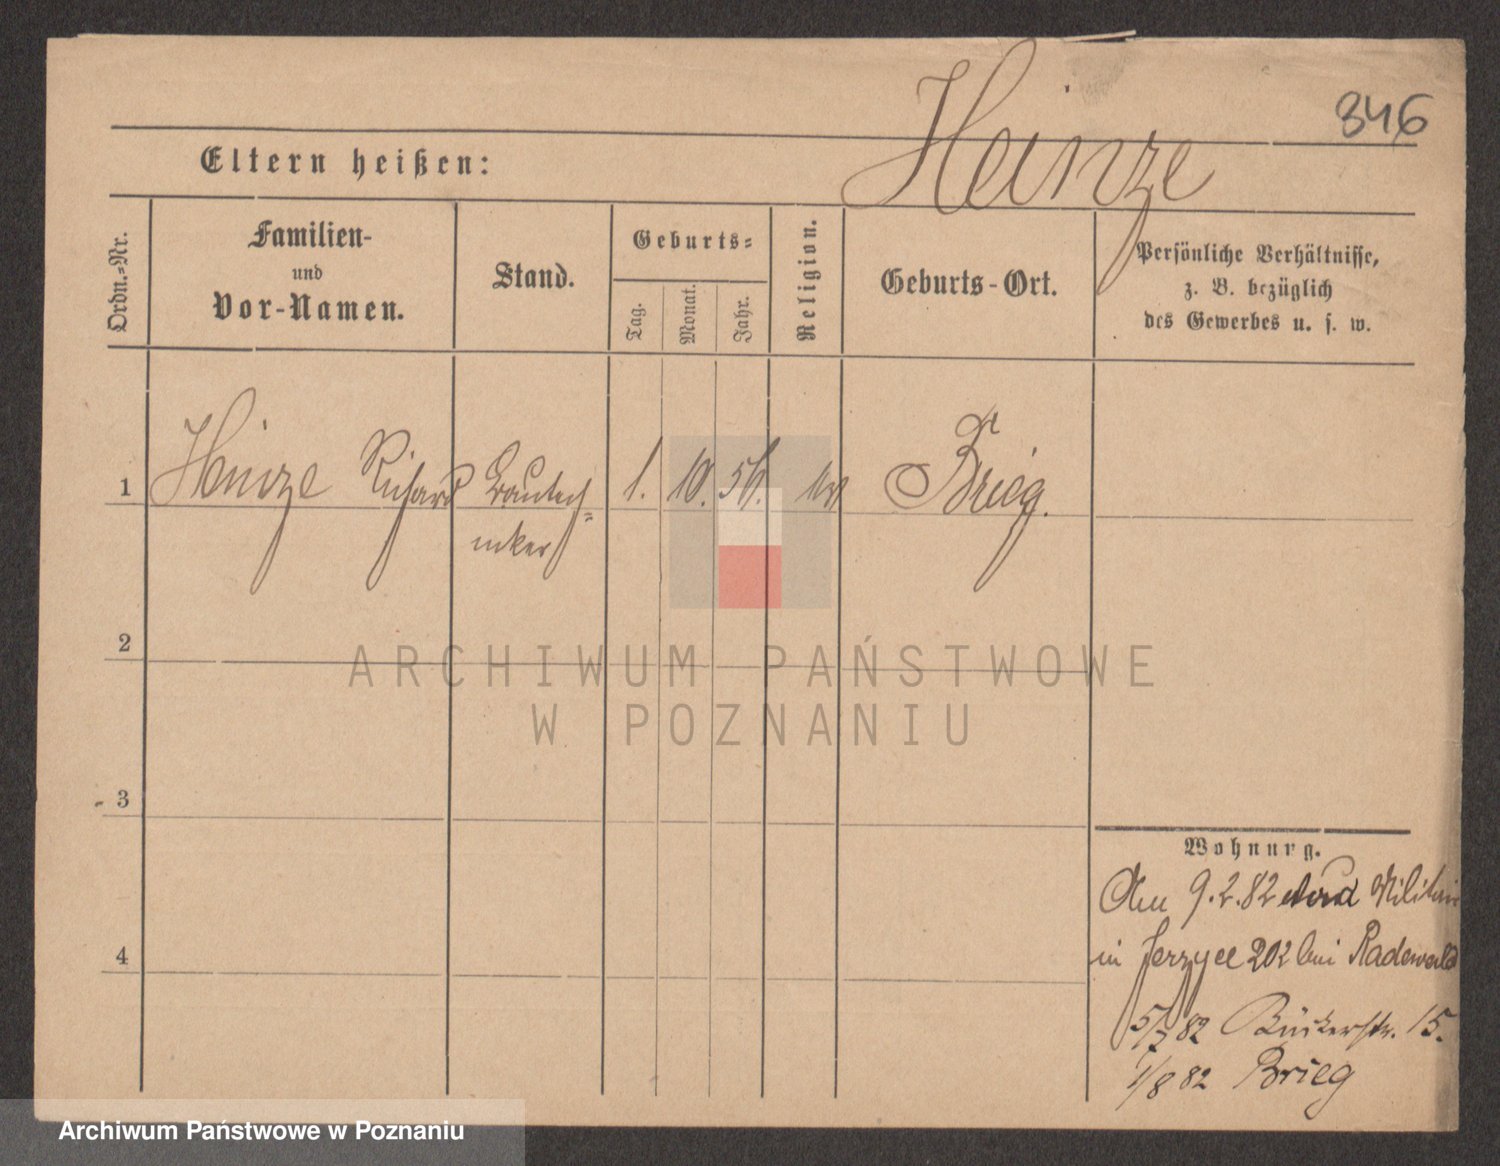 Heinze
346
Eltern heißen:
Ordn.=Nr.
Familien-
und
Vor-Namen.
Stand.
Geburts=
Tag.
Monat.
Jahr.
Religion.
Geburts-Ort.
Persönliche Verhältnisse,
z. B. bezüglich
des Gewerbes u. s. w.
1 Heinze Richard 1. 10. 56. Brieg.
2
3
4
ARCHIWUM PAŃSTWOWE
W POZNANIU
Wohnung.
9.2.82 Militair
in Jerzyce 202 bei Radewald
5/7 82 Bückerstr. 15.
1/8 82 Brieg
Archiwum Państwowe w Poznaniu